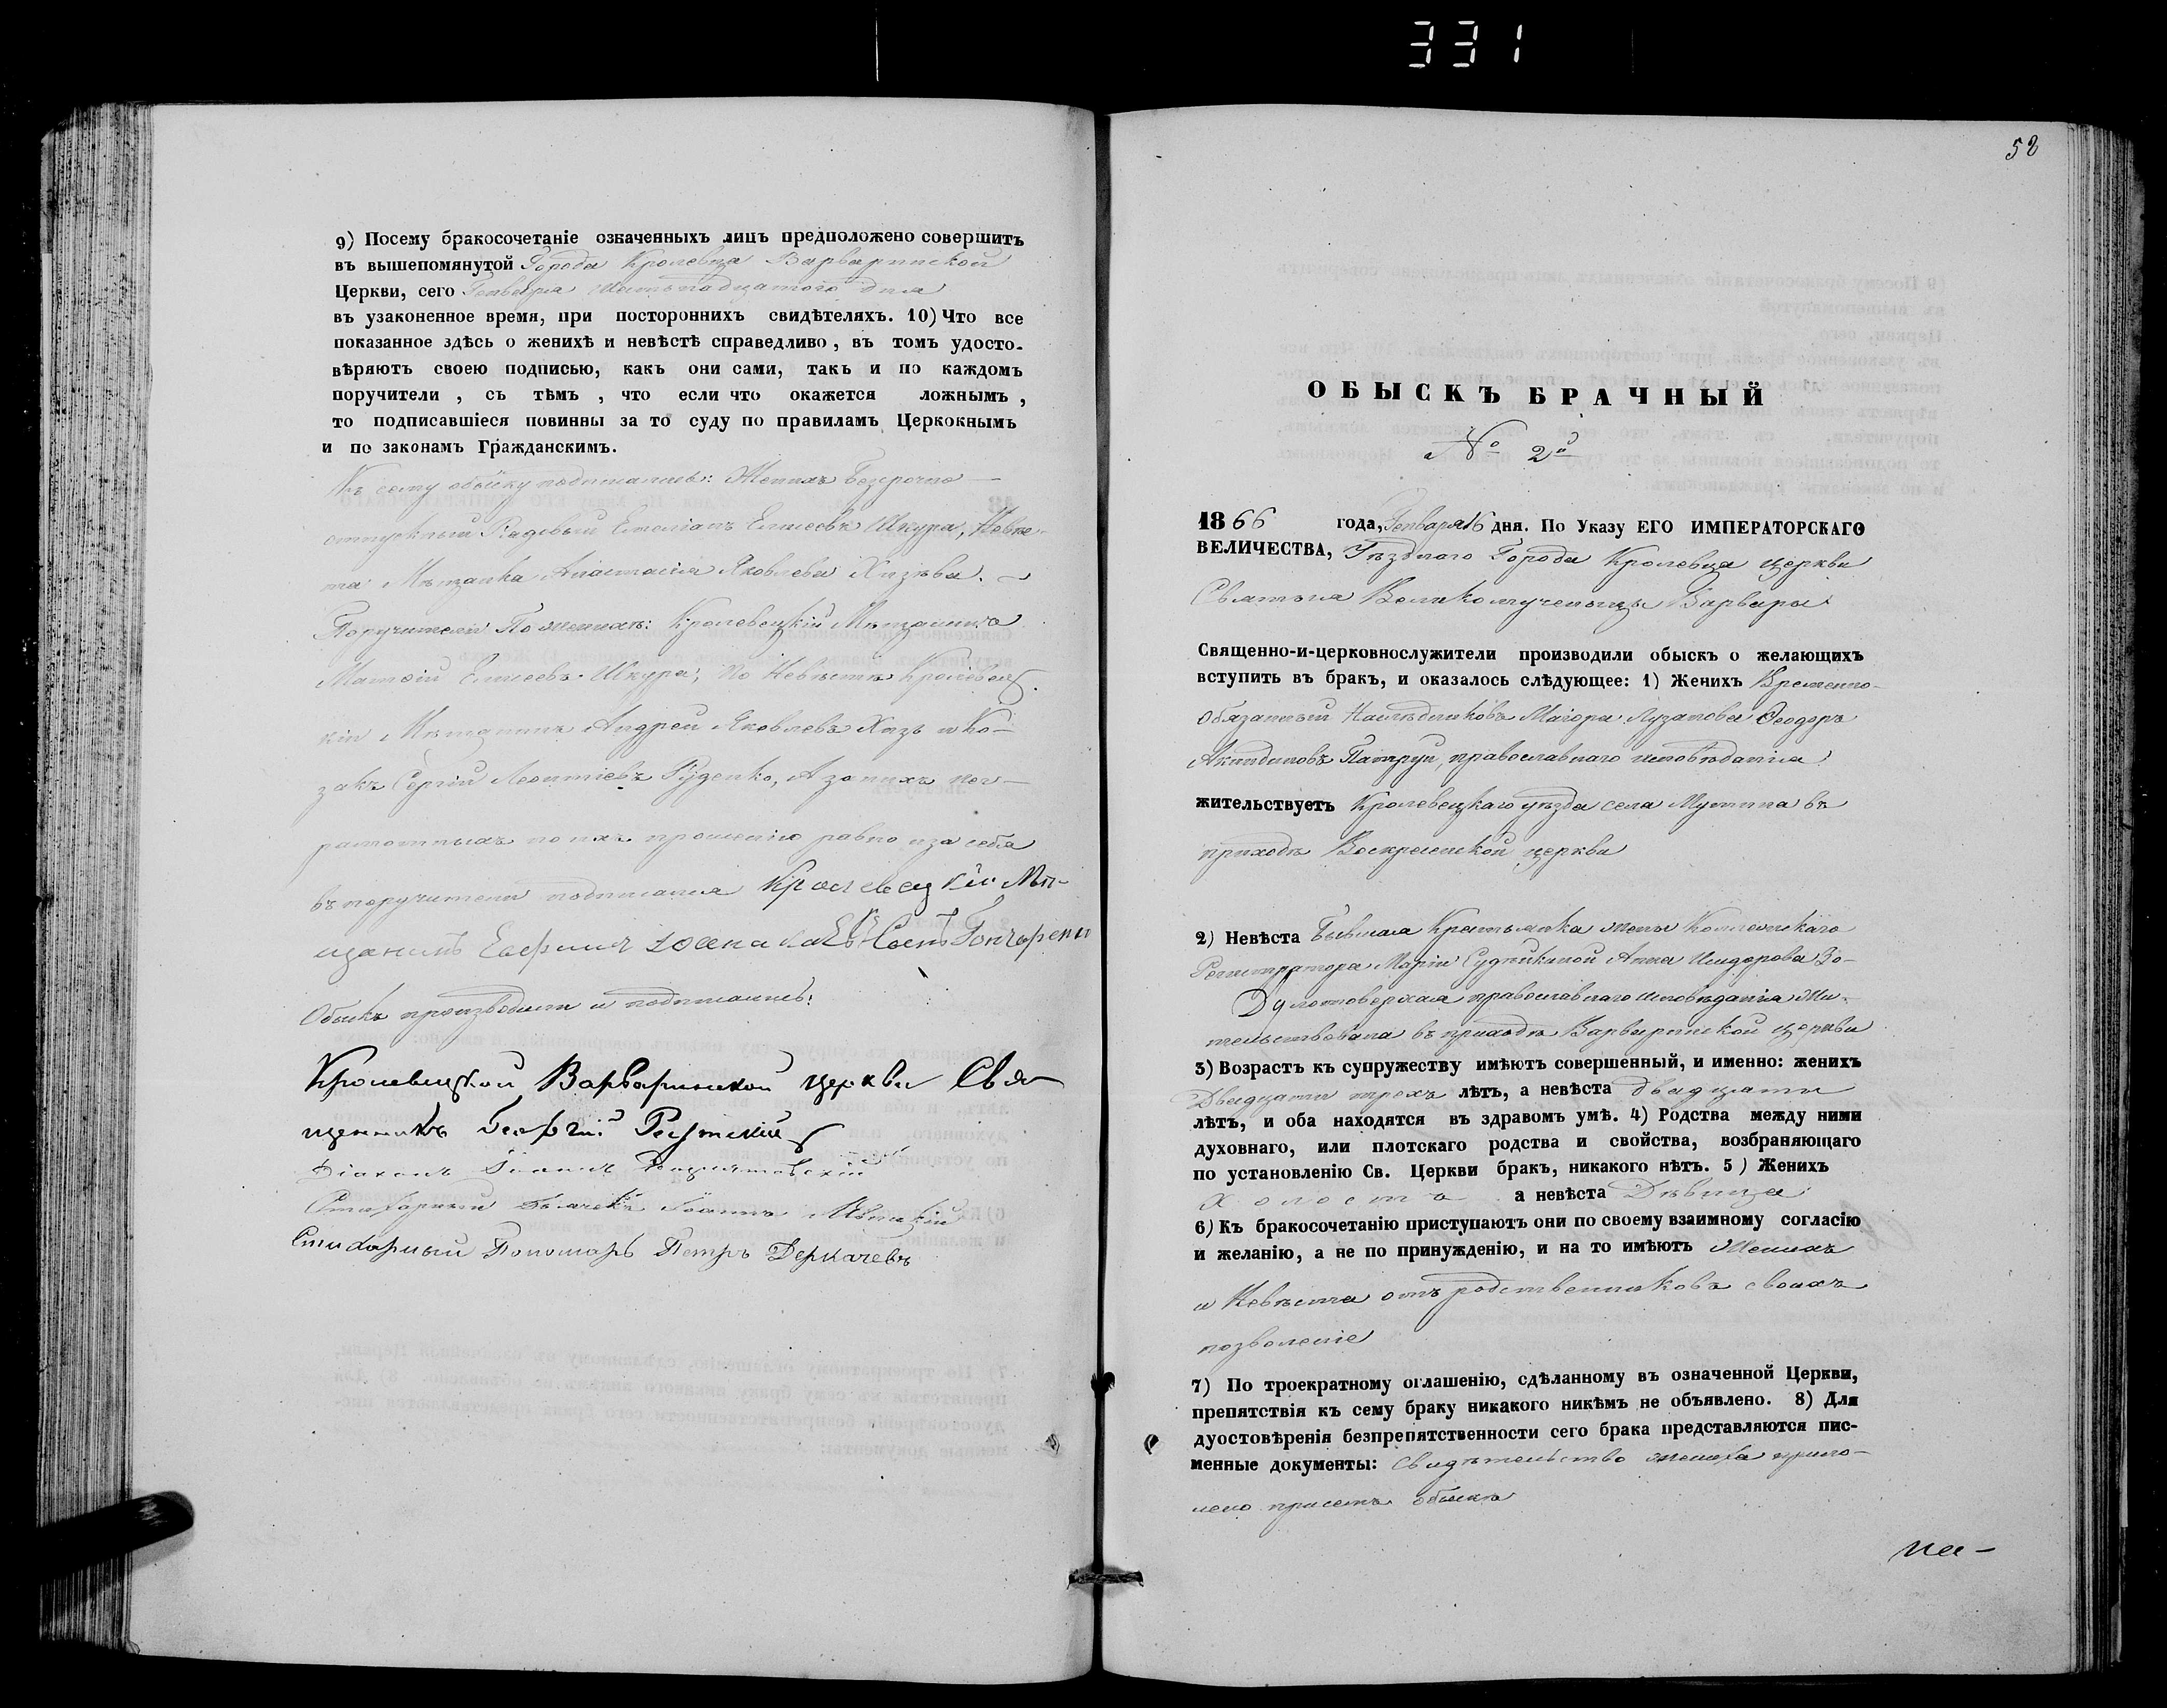 331
9) Посему бракосочетаніе означенныхъ лицъ предположено совершить
въ вышепомянутой Города Кролевца Варваринской
Церкви, сего Генваря Шатьнадцатого дня
въ узаконенное время, при постороннихъ свидѣтеляхъ. 10) Что все
показанное здѣсь о женихѣ и невѣстѣ справедливо, въ томъ удосто-
вѣряютъ своею подписью, какъ они сами, такъ и по каждомъ
поручители, съ тѣмъ, что если что окажется ложнымъ,
то подписавшіеся повинны за то суду по правиламъ Церкокнымъ
и по законамъ Гражданскимъ.
Къ сему обыску подписались: Женихъ Безсрочно
отпускный Рядовый Емеліанъ Елисеевъ Шкура, Невѣс-
та Мѣщанка Анастасія Яковлева Хизева.
Поручители По женихѣ: Кролевецкій Мѣщанинъ
Матѳій Елисеевъ Шкура; По Невѣстѣ Кролевец-
кій Мѣщанинъ Андрей Яковлевъ Хизъ и Ко-
закъ Сергій Леонтіевъ Руденко, А за нихъ нег-
рамотныхъ по ихъ прошенію равно и за себя
въ поручители подписался Кролевецкій Мѣ-
щанинъ Гончаренко
Обыскъ производили и подписались:
Кролевецкой Варваринской церкви Свя-
щенникъ Георгій
Діаконъ Іоаннъ
Стихарный Дьячекъ Іоаннъ
Стихарный Пономарь Петръ Деркачевъ
52
ОБЫСКЪ БРАЧНЫЙ
№ 2й
1866 года, Генваря 16 дня. По Указу ЕГО ИМПЕРАТОРСКАГО
ВЕЛИЧЕСТВА, Уѣзднаго Города Кролевца церкви
Святыя Великомученицы Варвары
Священно-и-церковнослужители производили обыскъ о желающихъ
вступить въ бракъ, и оказалось слѣдующее: 1) Женихъ Временно-
обязанный Наслѣдниковъ Маіора Лузанова Ѳеодоръ
Акиндиновъ Патрун, православнаго исповѣданія
жительствуетъ Кролевецкаго уѣзда села Мутина въ
приходѣ Воскресенской церкви
2) Невѣста Бывшая Крестьянка жены Коллежскаго
Регистратора Маріи Судейкиной Анна Исидорова Зо-
православнаго исповѣданія жи-
тельствовала въ приходѣ Варваринской церкви
3) Возрастъ къ супружеству имѣютъ совершенный, и именно: женихъ
Двадцати трехъ лѣтъ, а невѣста двадцати
лѣтъ, и оба находятся въ здравомъ умѣ. 4) Родства между ними
духовнаго, или плотскаго родства и свойства, возбраняющаго
по установленію Св. Церкви бракъ, никакого нѣтъ. 5) Женихъ
Холостъ а невѣста Дѣвица
6) Къ бракосочетанію приступаютъ они по своему взаимному согласію
и желанію, а не по принужденію, и на то имѣютъ Женихъ
и Невѣста отъ родственниковъ своихъ
позволеніе
7) По троекратному оглашенію, сдѣланному въ означенной Церкви,
препятствія къ сему браку никакого никѣмъ не объявлено. 8) Для
дуостовѣренія безпрепятственности сего брака представляются пис-
менные документы: Свидѣтельство жениха прило-
жено при семъ обыскѣ